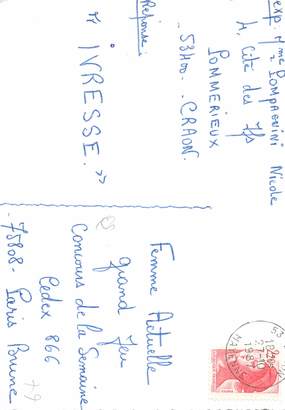 exp. Mme
POMPAGNINI Nicole
4, Cité des Ifs
POMMERIEUX
53400. CRAON.
Réponse :
" IVRESSE. "
Femme Actuelle
grand Jeu
Concours de la Semaine
Cedex 866
75808 - Paris Brune
79
53
18H
27-10
1987